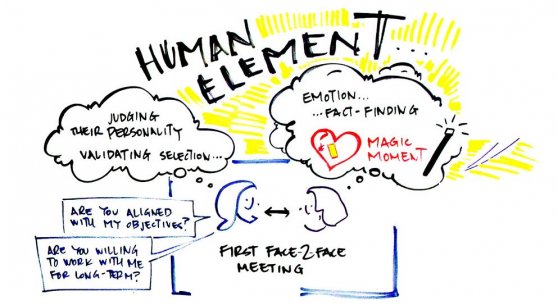 HUMAN
ELEMENT...
JUDGING
THEIR PERSONALITY
VALIDATING SELECTION...
EMOTION...
...FACT-FINDING
MAGIC
MOMENT
ARE YOU ALIGNED
WITH MY OBJECTIVES?
ARE YOU WILLING
TO WORK WITH ME
FOR LONG-TERM?
FIRST FACE-2-FACE
MEETING